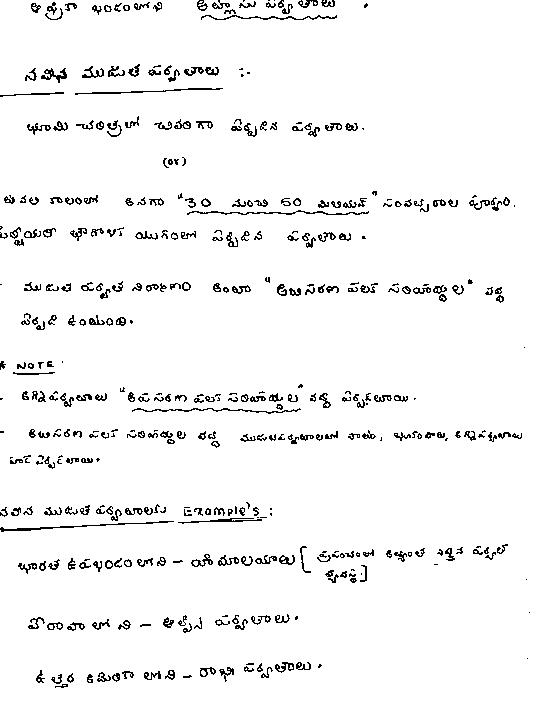 ఆఫ్రికా ఖండంలోని అట్లాసు పర్వతాలు .
నవీన ముడుత పర్వతాలు :-
భూమి చరిత్రలో చివరిగా ఏర్పడిన పర్వతాలు.
(or)
ఇటీవల కాలంలో అనగా "30 నుంచి 60 మిలియన్" సంవత్సరాల పూర్వం.
టెర్షియరీ భౌగోళిక యుగంలో ఏర్పడిన పర్వతాలు .
- ముడుత పర్వత నిర్మాణం అంతా "అభిసరణ పలక సరిహద్దుల" వద్ద
ఏర్పడి ఉంటుంది.
* NOTE
- అగ్నిపర్వతాలు "అపసరణ పలక సరిహద్దుల" వద్ద ఏర్పడతాయి.
- అభిసరణ పలక సరిహద్దుల వద్ద ముడుతపర్వతాలతో పాటు, భూకంపాలు, అగ్నిపర్వతాలు
కూడా ఏర్పడతాయి.
నవీన ముడుత పర్వతాలకు Example's :
భారత ఉపఖండంలోని - హిమాలయాలు [ ప్రపంచంలో అత్యంత ఎత్తైన పర్వత
వ్యవస్థ ]
ఐరోపా లోని - ఆల్ప్స్ పర్వతాలు.
ఉత్తర అమెరికా లోని - రాకీ పర్వతాలు.